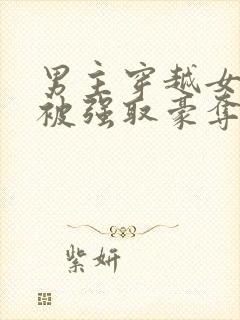 男主穿越女
被强取豪夺
紫妍